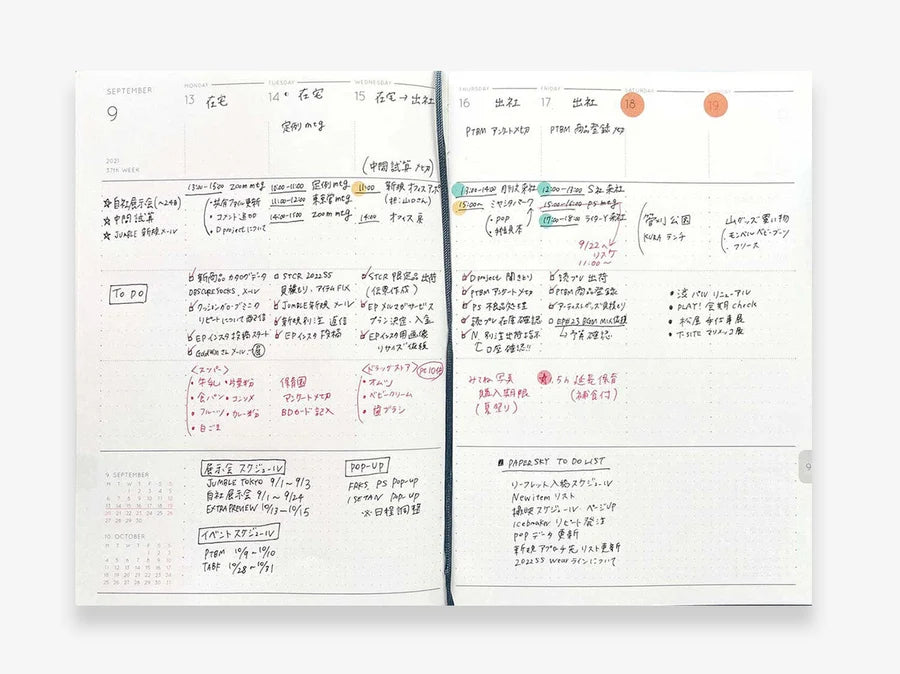 SEPTEMBER
9
2021
37TH WEEK
MONDAY
13 在宅
TUESDAY
14 在宅
定例mtg
WEDNESDAY
15 在宅→出社
(中間試算〆切)
☆自社展示会(~24日)
☆中間試算
☆JUMBLE 新規メール
13:00-15:00 Zoom mtg
・コメント追加
・D projectについて
10:00-11:00 定例mtg
11:00-12:00 東京営mtg
14:00-15:00 Zoom mtg
11:00 新規オフィスアポ
(担:山口さん)
14:00 オフィス戻
TO DO
新商品カタログデータ
OBSCURE SOCKS メール
クッションカローブミニク
リピートについて再配信
EPインスタ投稿スタート
Goldwinさんメール
STCR 2022SS
見積もり、アイテムFIX
JUMBLE新規メール
新規別注返信
EPインスタ投稿
STCR 限定品出荷
(伝票作成)
EPメルマガサービス
プラン決定・入金
EPインスタ用画像
リサイズ依頼
<スーパー>
・牛乳 ・片栗粉
・食パン ・コンソメ
・フルーツ ・カレー粉
・白ごま
保育園
アンケート〆切
BDカード記入
<ドラッグストア> Pt 10倍
・オムツ
・ベビークリーム
・歯ブラシ
9 SEPTEMBER
10 OCTOBER
展示会スケジュール
JUMBLE TOKYO 9/1~9/3
自社展示会 9/1~9/24
EXTRAPREVIEW 10/13~10/15
イベントスケジュール
PTBM 10/9~10/10
TABF 10/28~10/31
POP-UP
FRKS PS POP-UP
ISETAN POP UP
※日程調整
THURSDAY
16 出社
PTBM アンケート〆切
FRIDAY
17 出社
PTBM 商品登録〆切
SATURDAY
18
SUNDAY
19
13:00-14:00 月刊太来社
15:00~ ミヤシタパーク
・POP
・雑貨見本
12:00-13:00 S社来社
15:00-16:00 PS mtg
17:00-18:00 ライターY来社
9/22へ
リスケ
11:00~
管刈公園
KURA ランチ
山グッズ買い物
・モンベルベビーブーツ
・フリース
D project 聞きとり
PTBMアンケート〆切
PS 不良品処理
読プレ在庫確認
N.別注出荷指示
口座確認!!
読プレ出荷
PTBM商品登録
アーティストグッズ見積もり
EP#23 BGM MIX依頼
↳予算確認
・渋パル リニューアル
・PLAY! 会期check
・松屋 手仕事展
・T-SITE マリメッコ展
みてね写真
購入期限
(夏祭り)
1.5h 延長保育
(補食付)
PAPERSKY TO DO LIST
リーフレット入稿スケジュール
New item リスト
撮影スケジュール ページUP
icebreaker リピート発注
POPデータ更新
新規アプローチ先リスト更新
2022SS wearラインについて
9